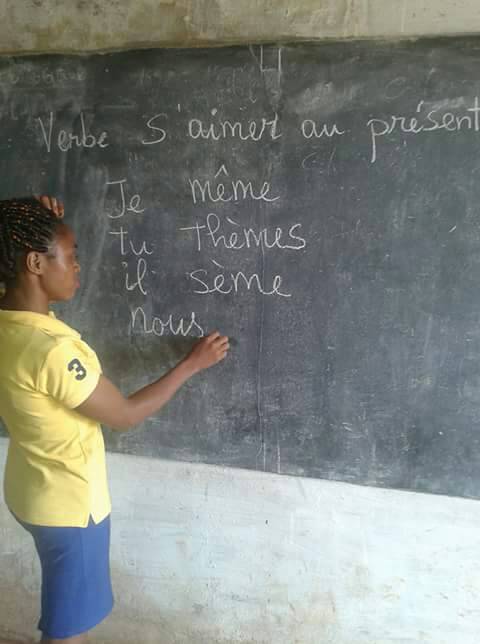 Verbe s'aimer au présent
Je même
tu thèmes
il sème
nous
3